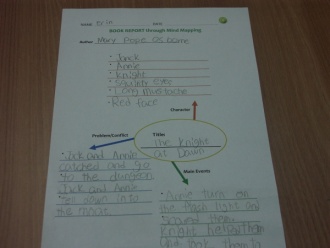 NAME Erin DATE
BOOK REPORT through Mind Mapping
Author: Mary Pope Osborne
- Jack
- Annie
- Knight
- Squinty eyes
- Long mustache
- Red face
Character
Problem/Conflict
Title:
The Knight
at Dawn
Main Events
Jack and Annie
catched and go
to the dungeon
Jack and Annie
into
the moat
Annie turn on
the flash light and
them
Knight help them
and took them to